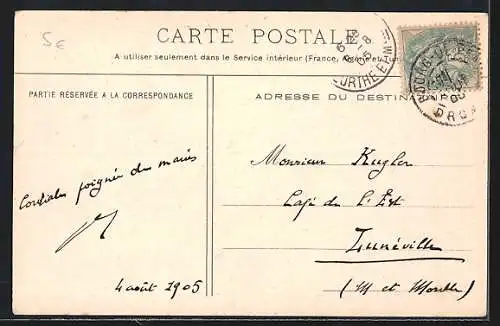 5€
CARTE POSTALE
A utiliser seulement dans le Service intérieur (France,
PARTIE RÉSERVÉE A LA CORRESPONDANCE
ADRESSE DU DESTINATAIRE
Cordiales poignées de mains
4 août 1905
Monsieur Kugler
Café de l'Est
Lunéville
(M et Moselle)